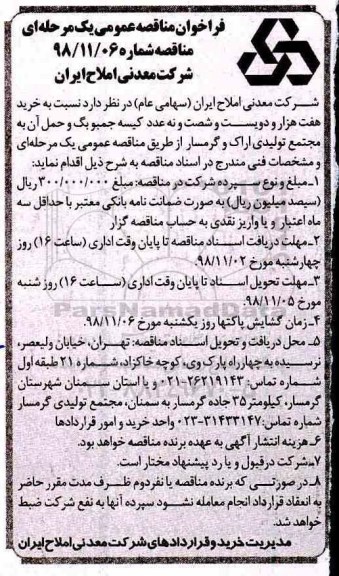 فراخوان مناقصه عمومی یک مرحله‌ای
مناقصه شماره ۹۸/۱۱/۰۶
شرکت معدنی املاح ایران
شرکت معدنی املاح ایران (سهامی عام) در نظر دارد نسبت به خرید
هفت هزار و دویست و شصت و نه عدد کیسه جمبو بگ و حمل آن به
مجتمع تولیدی اراک و گرمسار از طریق مناقصه عمومی یک مرحله‌ای
و مشخصات فنی مندرج در اسناد مناقصه به شرح ذیل اقدام نماید:
۱ـ مبلغ و نوع سپرده شرکت در مناقصه: مبلغ ۳۰۰/۰۰۰/۰۰۰ ریال
(سیصد میلیون ریال) به صورت ضمانت نامه بانکی معتبر با حداقل سه
ماه اعتبار و یا واریز نقدی به حساب مناقصه گزار
۲ـ مهلت دریافت اسناد مناقصه تا پایان وقت اداری (ساعت ۱۶) روز
چهارشنبه مورخ ۹۸/۱۱/۰۲.
۳ـ مهلت تحویل اسناد تا پایان وقت اداری (ساعت ۱۶) روز شنبه
مورخ ۹۸/۱۱/۰۵.
۴ـ زمان گشایش پاکتها روز یکشنبه مورخ ۹۸/۱۱/۰۶.
۵ـ محل دریافت و تحویل اسناد مناقصه: تهران، خیابان ولیعصر،
نرسیده به چهارراه پارک وی، کوچه خاکزاد، شماره ۲۱ طبقه اول
شماره تماس: ۲۶۲۱۹۱۴۳-۰۲۱ و یا استان سمنان شهرستان
گرمسار، کیلومتر ۳۵ جاده گرمسار به سمنان، مجتمع تولیدی گرمسار
شماره تماس: ۳۱۴۳۳۱۴۷-۰۲۳ واحد خرید و امور قراردادها
۶ـ هزینه انتشار آگهی به عهده برنده مناقصه خواهد بود.
۷ـ شرکت در قبول و یا رد پیشنهاد مختار است.
۸ـ در صورتی که برنده مناقصه یا نفر دوم ظرف مدت مقرر حاضر
به انعقاد قرارداد انجام معامله نشود سپرده آنها به نفع شرکت ضبط
خواهد شد.
مدیریت خرید و قراردادهای شرکت معدنی املاح ایران